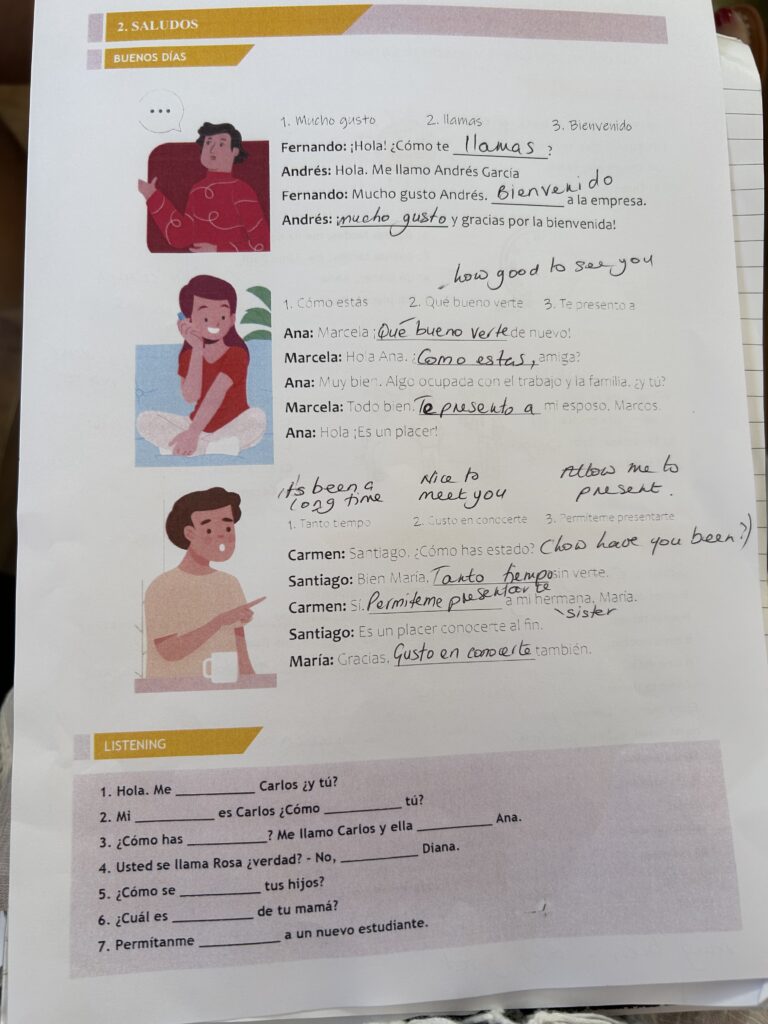 2. SALUDOS
BUENOS DÍAS
...
1. Mucho gusto 2. llamas 3. Bienvenido
Fernando: ¡Hola! ¿Cómo te llamas?
Andrés: Hola. Me llamo Andrés García
Fernando: Mucho gusto Andrés. Bienvenido a la empresa.
Andrés: ¡mucho gusto y gracias por la bienvenida!
how good to see you
1. Cómo estás 2. Qué bueno verte 3. Te presento a
Ana: Marcela ¡Qué bueno verte de nuevo!
Marcela: Hola Ana. ¿Como estas, amiga?
Ana: Muy bien. Algo ocupada con el trabajo y la familia, ¿y tú?
Marcela: Todo bien. Te presento a mi esposo, Marcos.
Ana: Hola ¡Es un placer!
it's been a long time Nice to meet you Allow me to present.
1. Tanto tiempo 2. Gusto en conocerte 3. Permíteme presentarte
Carmen: Santiago, ¿Cómo has estado? (how have you been?)
Santiago: Bien María. Tanto tiempo sin verte.
Carmen: Sí. Permiteme presentarte a mi hermana, María.
sister
Santiago: Es un placer conocerte al fin.
María: Gracias. Gusto en conocerte también.
LISTENING
1. Hola. Me __________ Carlos ¿y tú?
2. Mi __________ es Carlos ¿Cómo __________ tú?
3. ¿Cómo has __________? Me llamo Carlos y ella __________ Ana.
4. Usted se llama Rosa ¿verdad? - No, __________ Diana.
5. ¿Cómo se __________ tus hijos?
6. ¿Cuál es __________ de tu mamá?
7. Permítanme __________ a un nuevo estudiante.